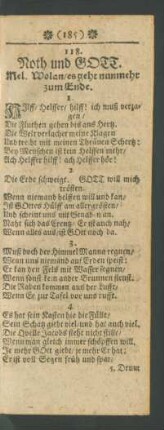 (185)
118.
Noth und GOTT.
Mel. Wolan/ es geht nunmehr
zum Ende.
1
HIlff/ Helffer/ hilff! ich muß verza-
gen/
Die Fluthen gehen bis ans Hertz.
Die Welt verlachet meine Klagen
Und treibt mit meinen Thränen Schertz:
Bey Menschen ist kein Helffen mehr/
Ach Helffer hilff! ach Helffer hör!
2
Die Erde schweigt. GOTT will mich
trösten.
Wenn niemand helffen will und kan/
Ist GOttes Hülff am allergrösten/
Und schreibt uns mit Genad- an.
Naht sich das Creutz/ Er ist auch nah/
Wenn alles aus/ ist GOtt auch da.
3
Muß doch der Himmel Manna regnen/
Wenn uns niemand auf Erden speist:
Er kan den Fels mit Wasser segnen/
Wenn sonst kein ander Brunnen fleust.
Die Raben kommen aus der Lufft/
Wenn Er zur Tafel vor uns rufft.
4
Es hat sein Kasten hie die Fülle/
Sein Schatz giebt viel und hat auch viel.
Die Quelle Jacobs steht nicht stille/
Wenn man gleich immer schöpffen will.
Je mehr GOtt giebt/ je mehr Er hat/
Er ist voll Segen früh und spat.
5. Drum